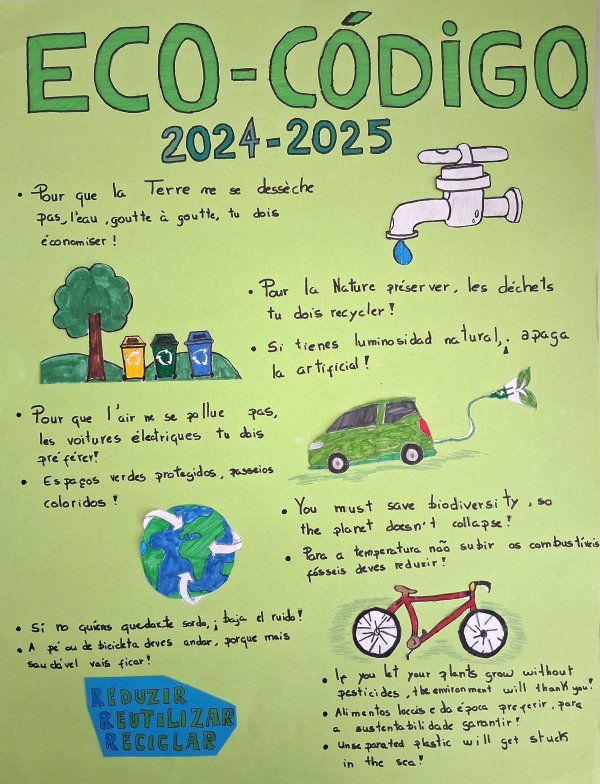 ECO-CÓDIGO
2024-2025
• Pour que la Terre ne se dessèche
pas, l'eau, goutte à goutte, tu dois
économiser !
• Pour la Nature préserver, les déchets
tu dois recycler !
• Si tienes luminosidad natural, ¡ apaga
la artificial !
• Pour que l'air ne se pollue pas,
les voitures électriques tu dois
préférer!
• Espaços verdes protegidos, passeios
coloridos !
• You must save biodiversity, so
the planet doesn't collapse !
• Para a temperatura não subir os combustíveis
fósseis deves reduzir !
• Si no quieres quedarte sordo, ¡ baja el ruido!
• A pé ou de bicicleta deves andar, porque mais
saudável vais ficar!
• If you let your plants grow without
pesticides, the environment will thank you!
• Alimentos locais e da época preferir, para
a sustentabilidade garantir !
• Unseparated plastic will get stuck
in the sea!
REDUZIR
REUTILIZAR
RECICLAR